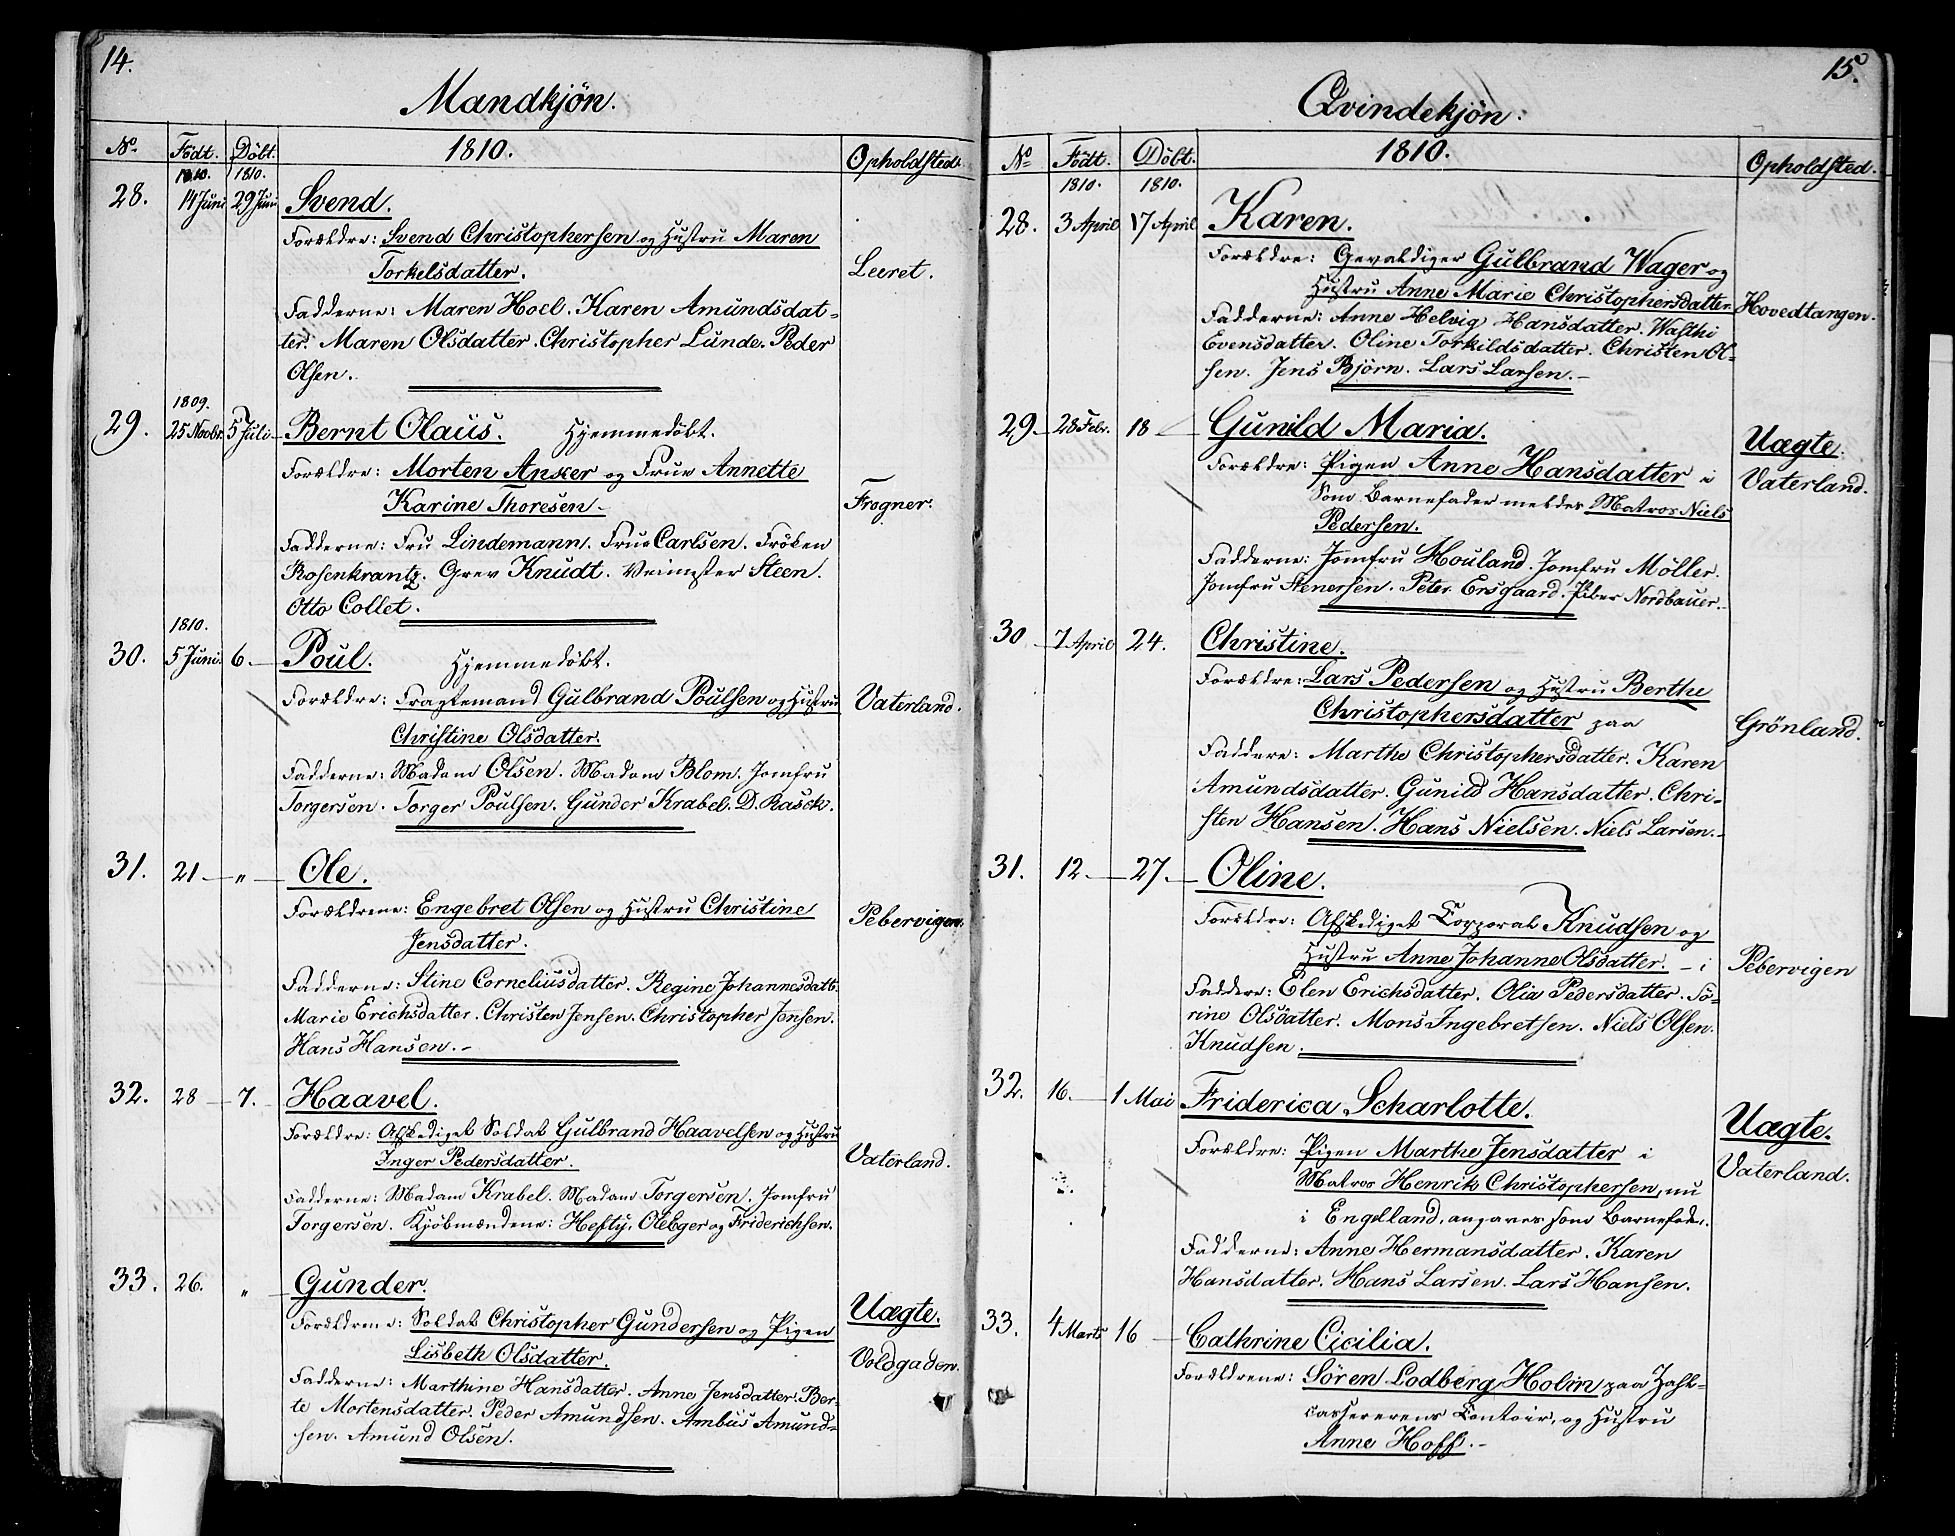 14.
Mandkjön.
No. Födt. Döbt. 1810. Opholdsted.
1810. 1810.
28. 14 Juni 29 Juni Svend.
Forældre: Svend Christophersen og Hustru Maren
Torkelsdatter. Leeret.
Fadderne: Maren Hoel. Karen Amundsdat-
ter. Maren Olsdatter. Christopher Lunde. Peder
Olsen.
1809.
29. 25 Novbr. 5 Juli Bernt Olaus. Hjemmedöbt.
Forældre: Morten Anker og Frue Annette
Karine Thoresen Frogner.
Fadderne: Fru Lindemann. Frue Carlsen. Fröken
Rosenkrantz. Grev Knudt. Veimester Steen.
Otto Collet.
1810.
30. 5 Juni. 6. Poul. Hjemmedöbt.
Forældre: Fragtemand Gulbrand Poulsen og Hustru Vaterland.
Christine Olsdatter.
Fadderne: Madam Olsen. Madam Blom. Jomfru
Torgersen. Torger Poulsen. Gunder Krabel. D. Rasck.
31. 21 " Ole.
Forældrene: Engebret Olsen og Hustru Christine Pebervigen.
Jensdatter.
Fadderne: Stine Corneliusdatter. Regine Johannesdatt.
Marie Erichsdatter. Christen Jensen. Christopher Jensen.
Hans Hansen.
32. 28 7. Haavel.
Forældre: Afskediget Soldat Gulbrand Haavelsen og Hustru
Inger Pedersdatter. Vaterland.
Fadderne: Madam Krabel. Madam Torgersen. Jomfru
Torgersen. Kjöbmændene: Hefty. Ole Eger og Friderichsen.
33. 26. " Gunder.
Forældrene: Soldat Christopher Gundersen og Pigen Uægte.
Lisbeth Olsdatter. Voldgaden.
Fadderne: Marthine Hansdatter. Anne Jensdatter. Ber-
te Mortensdatter. Peder Amundsen. Ambus Amund-
sen. Amund Olsen.
15.
Qvindekjön:
No Födt. Döbt. 1810. Opholdsted.
1810. 1810.
28. 3 April 17 April Karen.
Forældre: Gevaldiger Gulbrand Wager og
Hustru Anne Marie Christophersdatter. Hovedtangen.
Fadderne: Anne Helvig Hansdatter. Walthi
Evensdatter. Oline Torkildsdatter. Christen Ol-
sen. Jens Björn. Lars Larsen.
29 28 Febr. 18 Gunild Maria. Uægte.
Forældre: Pigen Anne Hansdatter i Vaterland.
Som Barnefader meldes Matros Niels
Pedersen.
Fadderne: Jomfru Houland. Jomfru Möller.
Jomfru Stenersen. Peter Ersgaard. Piber Nordbauer.
30 7 April 24. Christine.
Forældre: Lars Pedersen og Hustru Berthe
Christophersdatter paa Grönland.
Faddere: Marthe Christophersdatter. Karen
Amundsdatter. Gunild Hansdatter. Chri-
sten Hansen. Hans Nielsen. Niels Larsen.
31. 12 27. Oline.
Forældre: Afskediget Corporal Knudsen og
Hustru Anne Johanne Olsdatter. i Pebervigen
Faddere: Elen Erichsdatter. Olia Pedersdatter. Sö-
rine Olsdatter. Mons Ingebretsen. Niels Olsen.
Knudsen.
32. 16. 1 Mai Friderica Scharlotte.
Forældre: Pigen Marthe Jensdatter i Uægte.
Matros Henrik Christophersen, nu Vaterland.
i Engelland, angaves som Barnefader.
Fadderne: Anne Hermansdatter. Karen
Hansdatter. Hans Larsen. Lars Hansen.
33. 4 Marts 16 Cathrine Cicilia.
Forældrene: Sören Lodberg Holm paa Zahl-
cassererens Contoir, og Hustru
Anne Hoff.